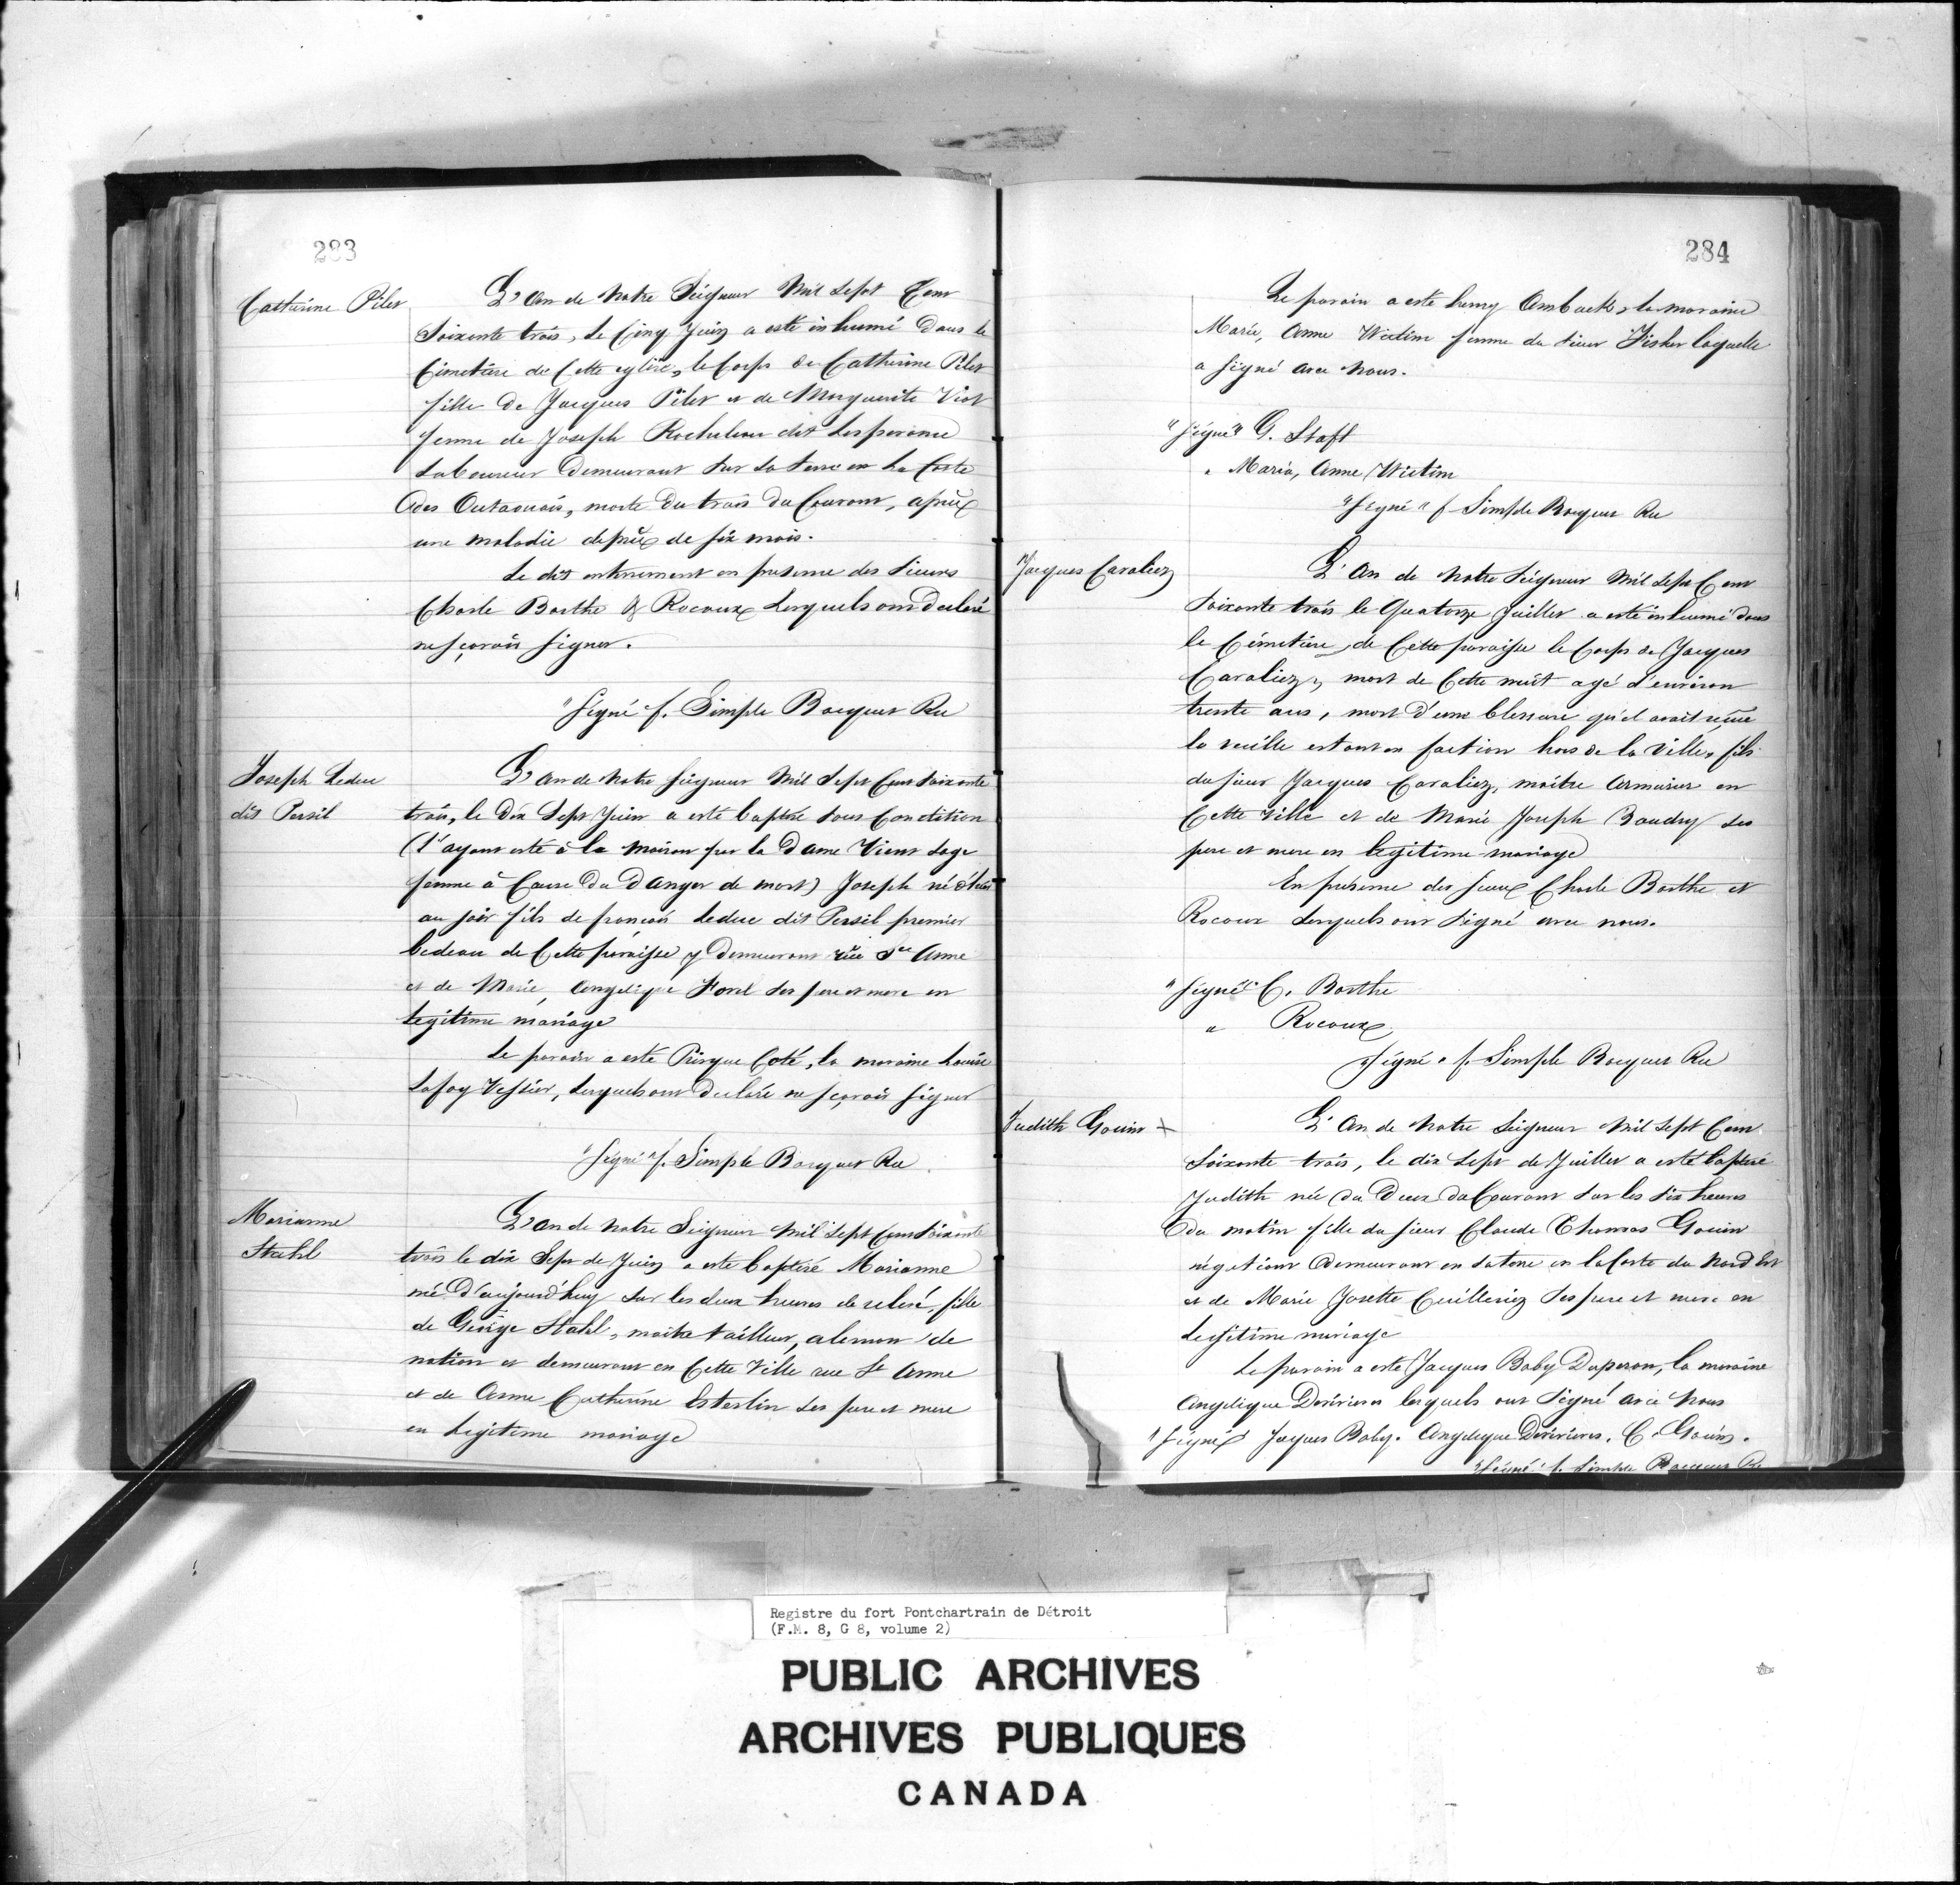 283
Catherine Pilet
L'an de Notre Seigneur Mil Sept Cent
Soixante trois, Le Cinq Juin a esté inhumé Dans le
Cimetière de Cette eglise, le Corps de Catherine Pilet
fille de Jacques Pilet et de Marguerite Viot
femme de Joseph Rocheleau dit Lesperance
Laboureur Demeurant Sur Sa terre en La Coste
des Outaouais, morte du trois du Courant, après
une maladie depuis de six mois.
Le dit enterrement en presence des Sieurs
Charle Barthe & Rocoux Lesquels ont Declaré
ne sçavoir signer.
"Signé" f. Simple Bocquet Rec
Joseph Leduc
dit Persil
L'an de Notre Seigneur Mil Sept Cent Soixante
trois, le Dix Sept Juin a esté baptisé sous Condition
(l'ayant esté à la maison par la Dame Vient Sage
femme à Cause Du Danger de mort) Joseph né d'hier
au soir fils de françois Leduc dit Persil premier
bedeau de Cette paroisse y Demeurant rüe Ste Anne
et de Marie, Angelique Forel Ses pere et mere en
legitime mariage
Le parain a esté Prisque Coté, la maraine Louise
Lafoy Vessier, Lesquels ont Declaré ne sçavoir signer
"Signé" f. Simple Bocquet Rec
Marianne
Stahl
L'an de Notre Seigneur Mil Sept Cent Soixante
trois le dix Sept de Juin a esté baptisé Marianne
née D'aujourd'huy Sur les deux heures de relevé, fille
de George Stahl, maitre tailleur, aleman de
nation et demeurant en Cette Ville rue St Anne
et de Anne Catherine Esterlin Ses pere et mere
en Legitime mariage
284
Le parain a esté henry Ambach, la maraine
Marie, Anne Wictim femme du Sieur Fisher laquelle
a signé avec nous.
"Signé" G. Staft
" Maria, Anne Wictim
"Signé" f Simple Bocquet Rec
Jacques Cavaliez
L'an de Notre Seigneur Mil Sept Cent
Soixante trois le Quatorze Juillet a esté inhumé dans
le Cémetière, de Cette paroisse le Corps de Jacques
Cavaliez, mort de Cette nuit agé d'environ
trente ans, mort d'une blessure qu'il avait reçue
la veille estant en faction hors de la Ville, fils
du sieur Jacques Cavaliez, maitre Armurier en
Cette Ville et de Marie Joseph Baudry Ses
pere et mere en legitime mariage
En présence des sieurs Charle Barthe et
Rocoux Lesquels ont Signé avec nous.
"Signé" C. Barthe
" Rocoux
"Signé" f. Simple Bocquet Rec
Judith Gouin +
L'An de Notre Seigneur Mil Sept Cent
Soixante trois, le dix Sept de Juillet a esté baptisé
Judith née du Deux du Courant Sur les Six heures
du matin fille du sieur Claude Thomas Gouin
négotiant Demeurant en Sa terre en la Coste du Nord Est
et de Marie Josette Cuilleriez Ses pere et mere en
Legitime mariage
Le parain a esté Jacques Baby Duperon, la maraine
Angelique Derivieres lesquels ont Signé avec nous
"Signé" Jacques Baby. Angelique Derivieres. C. Gouin.
"Signé" f. Simple Bocquet Rec
Registre du fort Pontchartrain de Détroit
(F.M. 8, G 8, volume 2)
PUBLIC ARCHIVES
ARCHIVES PUBLIQUES
CANADA